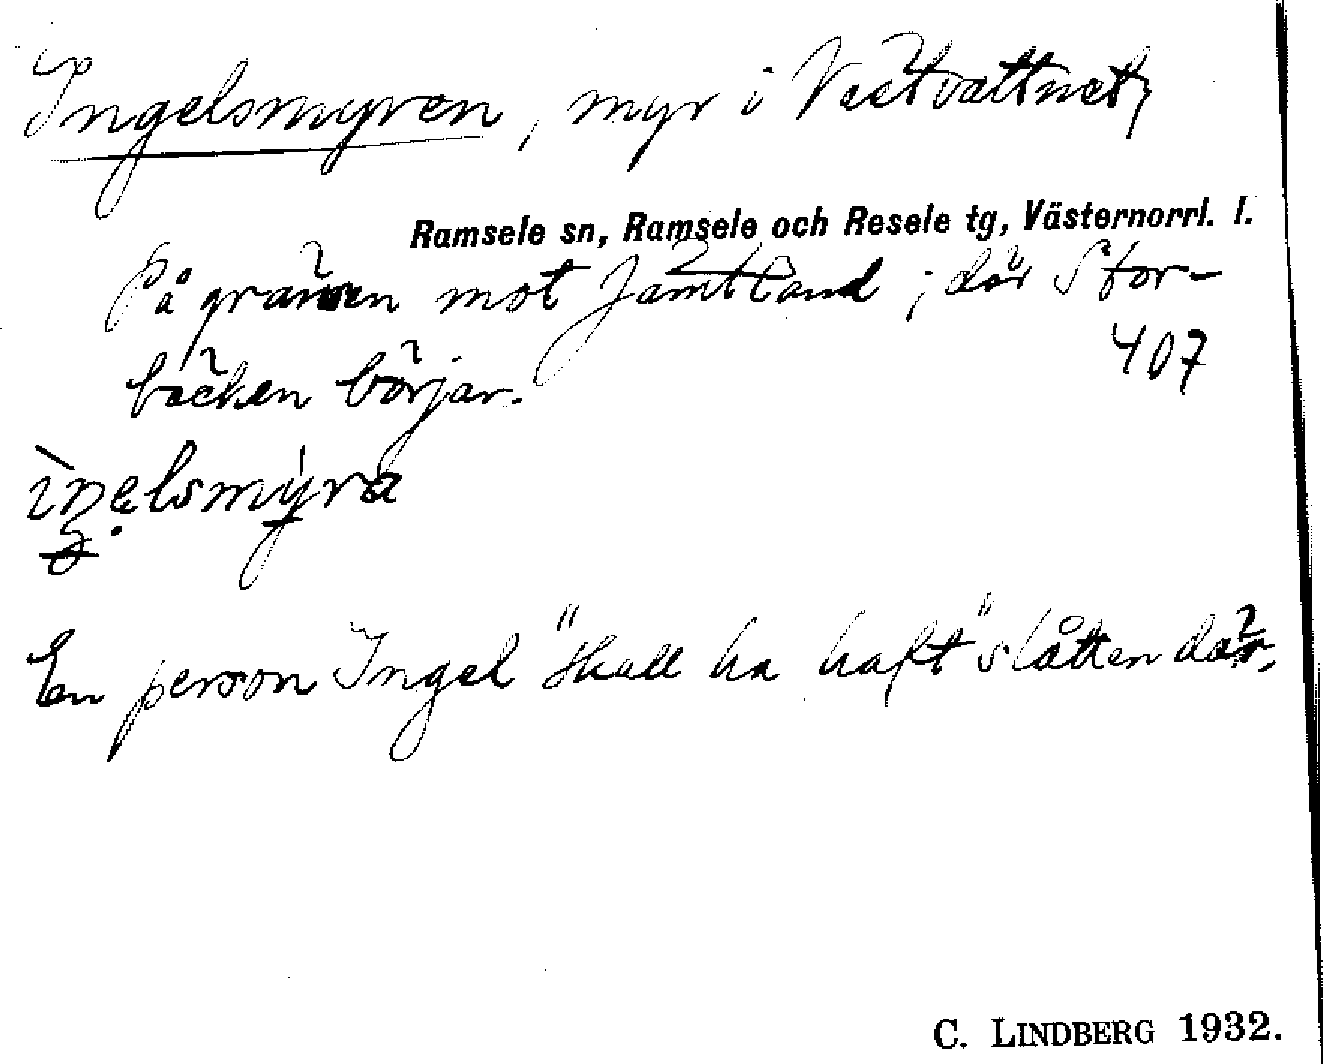 Ingelsmyren, myr i Västvattnet,
Ramsele sn, Ramsele och Resele tg, Västernorrl. l.
På gränsen mot Jämtland, där Stor-
bäcken börjar.
407
En person Ingel "skall ha haft" slåtten där.
C. LINDBERG 1932.